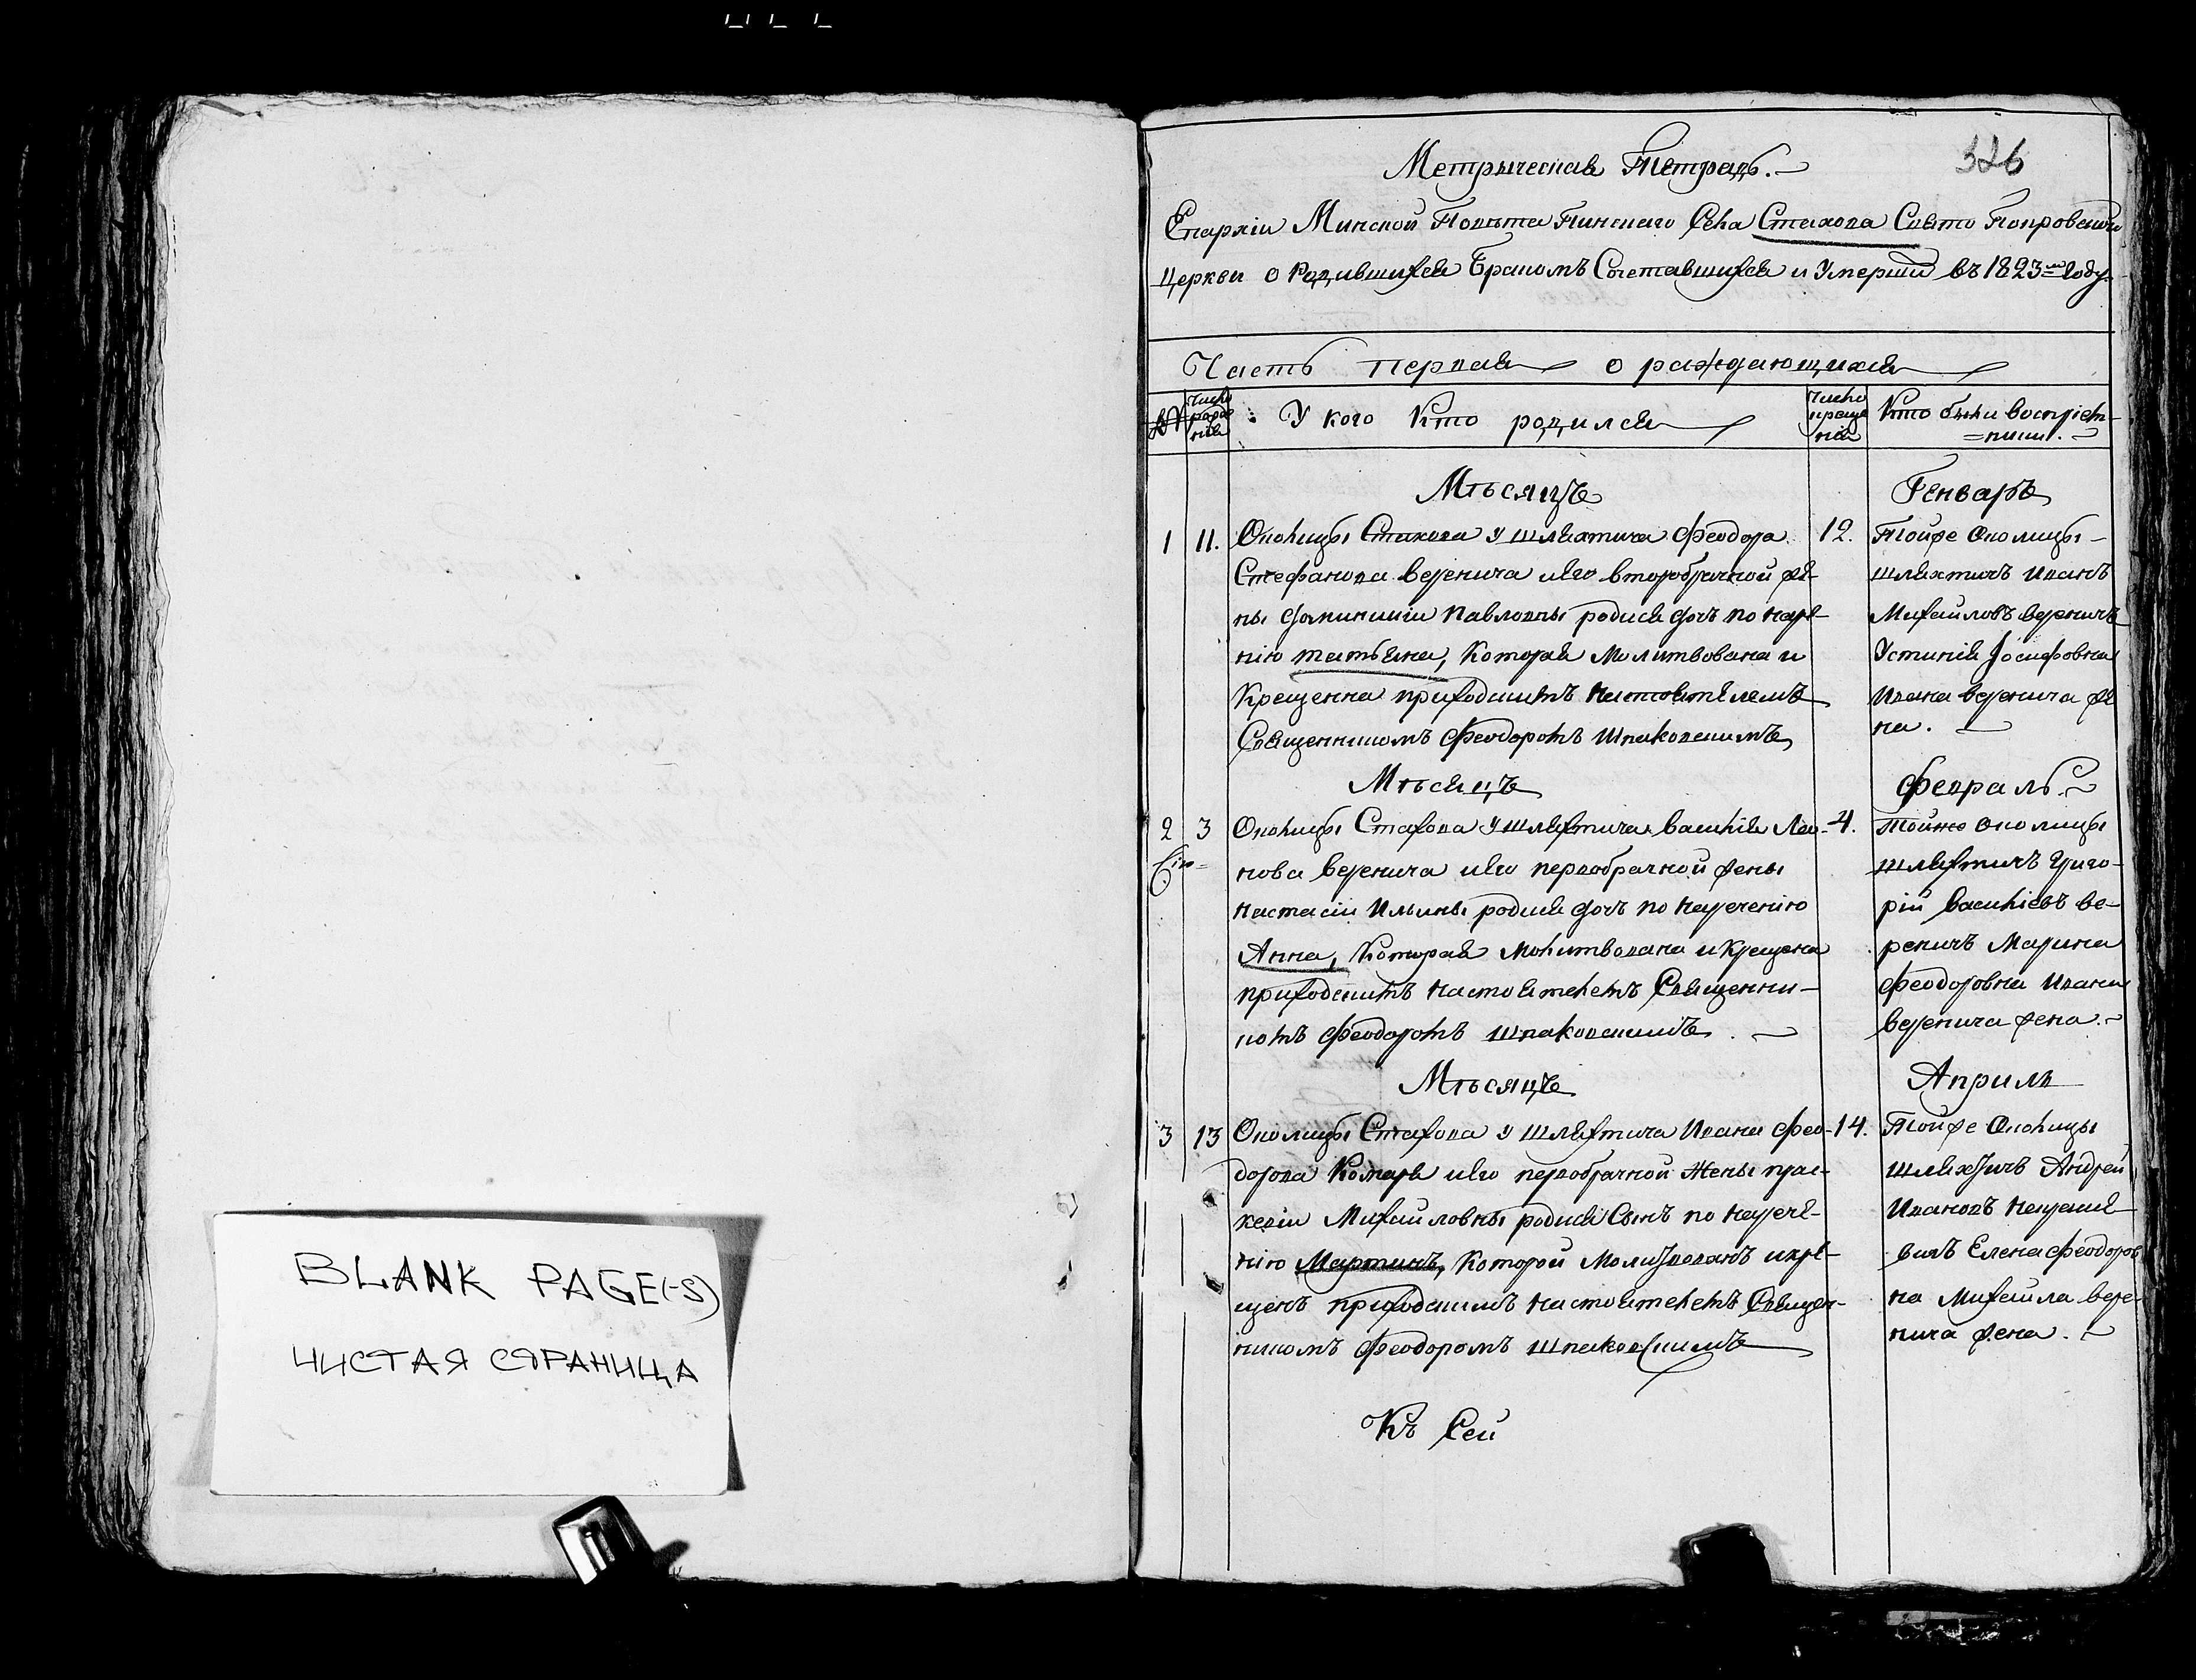 BLANK PAGE(-S)
ЧИСТАЯ СТРАНИЦА
326
Метрическая Тетрадь.
Епархіи Минской Повѣта Пинскаго Села Стахова Свято Покровской
Церкви о Родившихся Бракомъ Сочетавшихся и Умерши въ 1823м Году
Часть первая о раждающихся
Число рожденія
У кого Кто родился
Число крещенія
Кто были воспріем-
=ники.
Мѣсяцъ
Генварь
1 11. Околицы Стахова у шляхтича Феодора
Стефанова веренича и его второбрачной же-
ны Доминикіи Павловны родися дочь по наре-
нію татьяна, Которая Молитвована и
Крещенна приходскимъ настоятелемъ
Священникомъ Феодоромъ Шпаковскимъ
12. Тойже Околицы
шляхтичъ Иванъ
Михайловъ вереничъ
Устинія Іосифовна
Ивана веренича же
на.
Мѣсяцъ
Февраль
2 3 Околицы Стахова у шляхтича василія Лео-
нова веренича и его первобрачной жены
настасіи Ильины родися дочь по наречению
Анна, Которая молитвована и крещена
приходскимъ настоятелемъ Священни-
комъ Феодоромъ шпаковскимъ.
4. тойже околицы
шляхтичъ Григо-
рій василіевъ ве-
реничъ Марина
Феодоровна Ивана
веренича жена.
Мѣсяцъ
Априль
3 13 Околицы Стахова у шляхтича Ивана Фео-
дорова Комара и его первобрачной жены прас-
кевіи Михайловны родися Сынъ по нарече-
нію Мартинъ, Которой Молитвованъ и кре-
щенъ приходскимъ настоятелемъ Священ-
никомъ Феодоромъ шпаковскимъ
14. Тойже Околицы
шляхтичъ Андрей
Ивановъ
Елена Феодоров
на Михайла вере-
нича жена.
Къ Сей